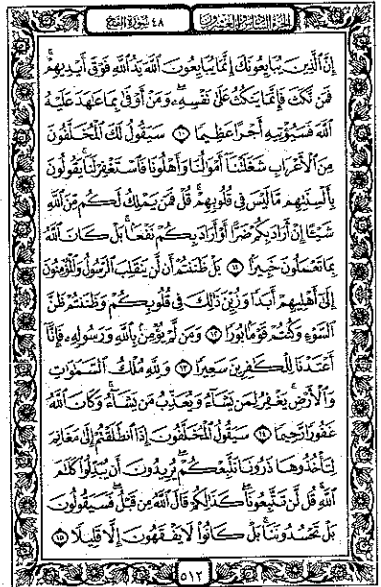 الجزء السادس والعشرون
٤٨ سورة الفتح
إِنَّ ٱلَّذِينَ يُبَايِعُونَكَ إِنَّمَا يُبَايِعُونَ ٱللَّهَ يَدُ ٱللَّهِ فَوْقَ أَيْدِيهِمْ ۚ
فَمَن نَّكَثَ فَإِنَّمَا يَنكُثُ عَلَىٰ نَفْسِهِۦ ۖ وَمَنْ أَوْفَىٰ بِمَا عَٰهَدَ عَلَيْهُ
ٱللَّهَ فَسَيُؤْتِيهِ أَجْرًا عَظِيمًا ١٠ سَيَقُولُ لَكَ ٱلْمُخَلَّفُونَ
مِنَ ٱلْأَعْرَابِ شَغَلَتْنَآ أَمْوَٰلُنَا وَأَهْلُونَا فَٱسْتَغْفِرْ لَنَا ۚ يَقُولُونَ
بِأَلْسِنَتِهِم مَّا لَيْسَ فِى قُلُوبِهِمْ ۚ قُلْ فَمَن يَمْلِكُ لَكُم مِّنَ ٱللَّهِ
شَيْـًٔا إِنْ أَرَادَ بِكُمْ ضَرًّا أَوْ أَرَادَ بِكُمْ نَفْعًۢا ۚ بَلْ كَانَ ٱللَّهُ
بِمَا تَعْمَلُونَ خَبِيرًۢا ١١ بَلْ ظَنَنتُمْ أَن لَّن يَنقَلِبَ ٱلرَّسُولُ وَٱلْمُؤْمِنُونَ
إِلَىٰٓ أَهْلِيهِمْ أَبَدًا وَزُيِّنَ ذَٰلِكَ فِى قُلُوبِكُمْ وَظَنَنتُمْ ظَنَّ
ٱلسَّوْءِ وَكُنتُمْ قَوْمًۢا بُورًا ١٢ وَمَن لَّمْ يُؤْمِنۢ بِٱللَّهِ وَرَسُولِهِۦ فَإِنَّآ
أَعْتَدْنَا لِلْكَٰفِرِينَ سَعِيرًا ١٣ وَلِلَّهِ مُلْكُ ٱلسَّمَٰوَٰتِ
وَٱلْأَرْضِ ۚ يَغْفِرُ لِمَن يَشَآءُ وَيُعَذِّبُ مَن يَشَآءُ ۚ وَكَانَ ٱللَّهُ
غَفُورًا رَّحِيمًا ١٤ سَيَقُولُ ٱلْمُخَلَّفُونَ إِذَا ٱنطَلَقْتُمْ إِلَىٰ مَغَانِمَ
لِتَأْخُذُوهَا ذَرُونَا نَتَّبِعْكُمْ ۖ يُرِيدُونَ أَن يُبَدِّلُوا۟ كَلَٰمَ
ٱللَّهِ ۚ قُل لَّن تَتَّبِعُونَا كَذَٰلِكُمْ قَالَ ٱللَّهُ مِن قَبْلُ ۖ فَسَيَقُولُونَ
بَلْ تَحْسُدُونَنَا ۚ بَلْ كَانُوا۟ لَا يَفْقَهُونَ إِلَّا قَلِيلًا ١٥
٥١٢